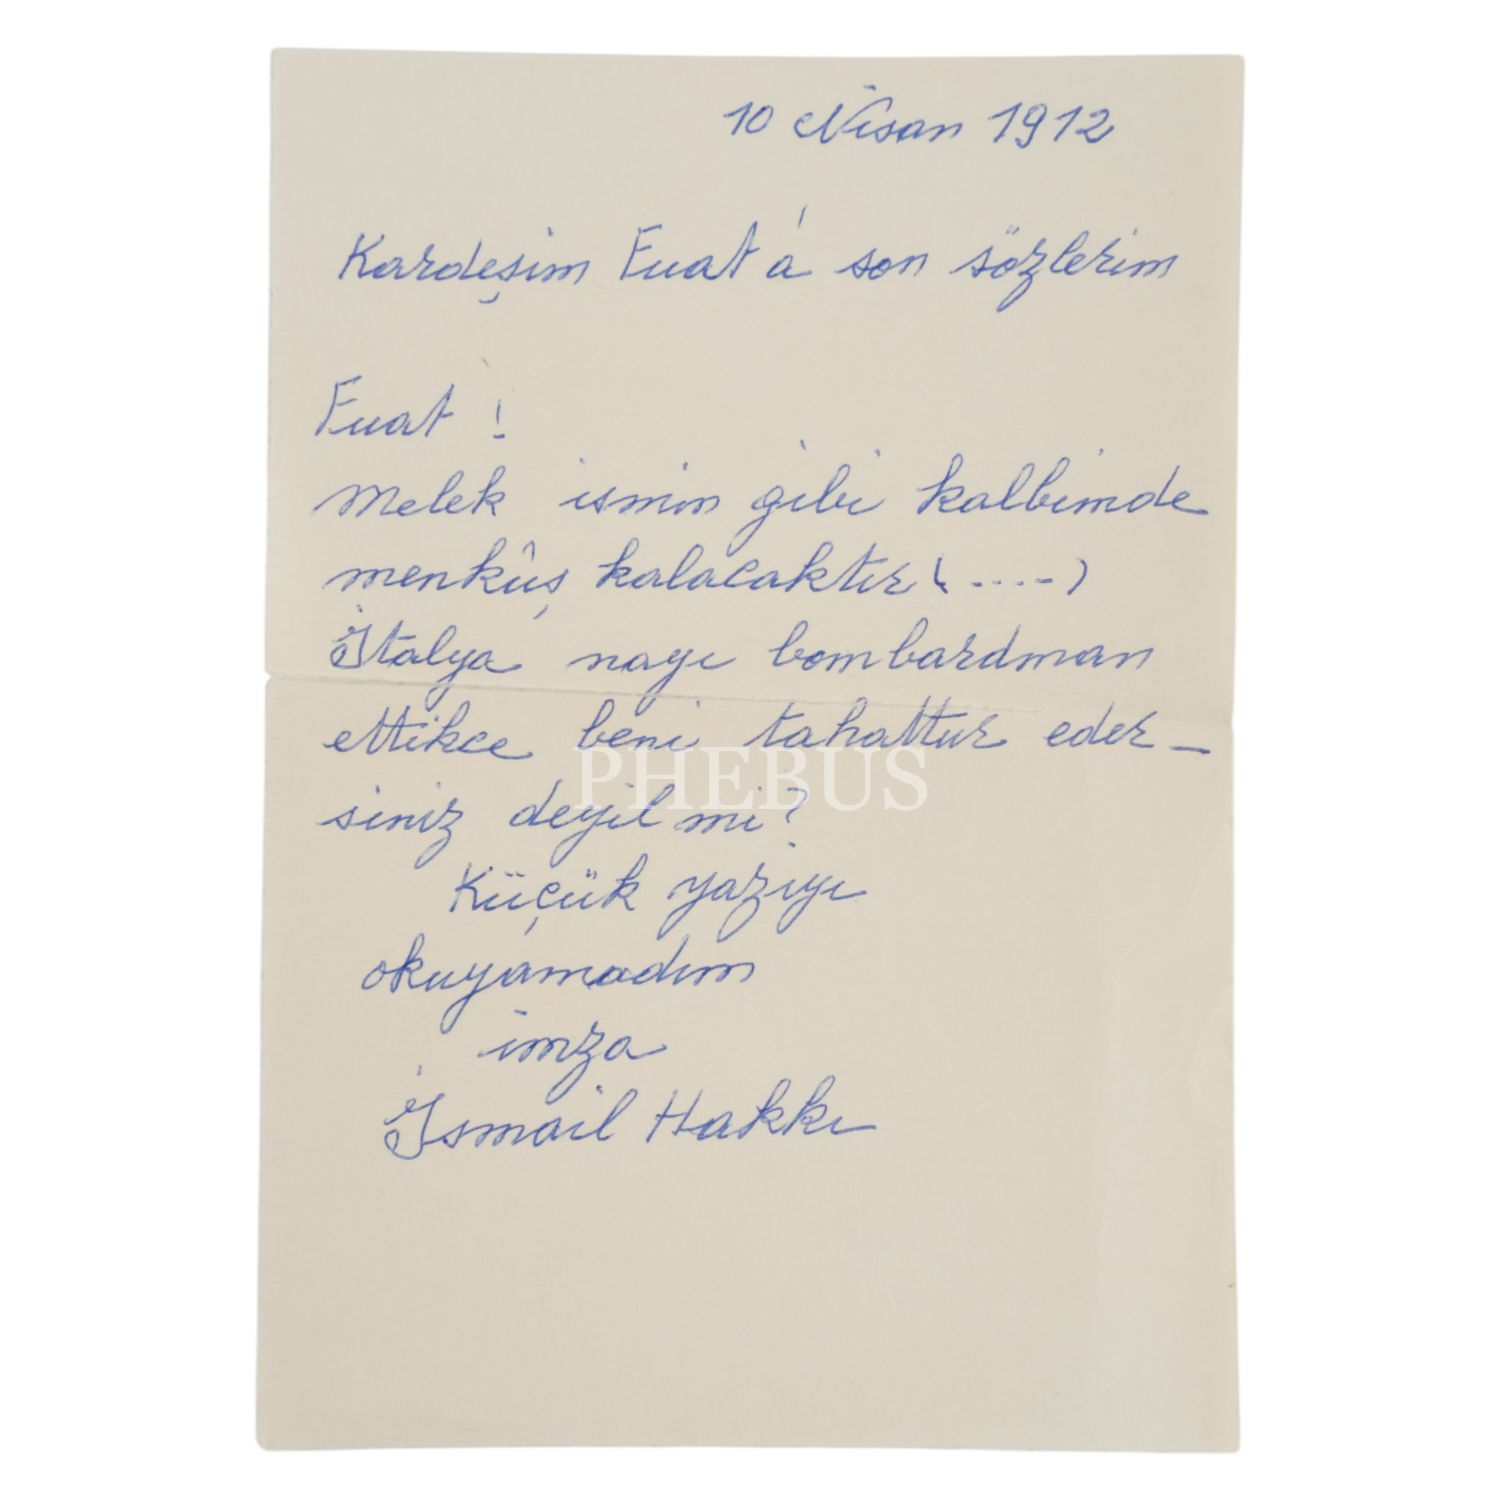 10 Nisan 1912
Kardeşim Fuat'a son sözlerim
Fuat !
Melek ismin gibi kalbimde
menkûş kalacaktır (....)
İtalya nayı bombardman
ettikce beni tahattur eder-
siniz deyil mi?
PHEBUS
Küçük yazıyı
okuyamadım
imza
İsmail Hakkı